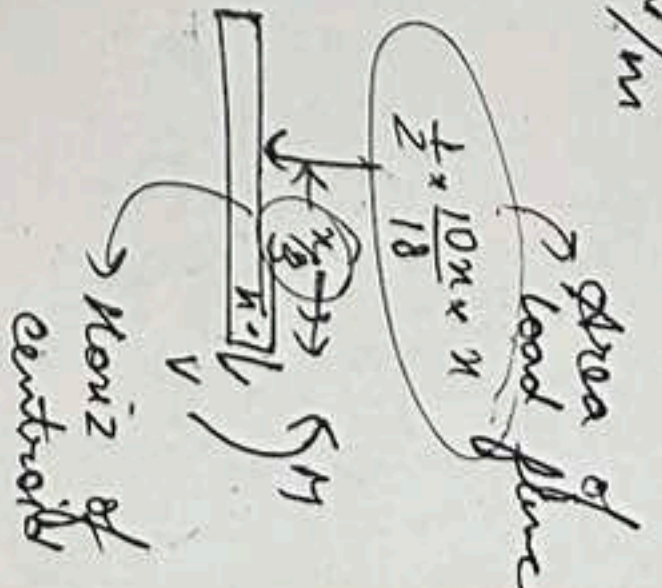 /m
Area of
load func
1/2 * 10x/18 * x
x/3
x
V
M
Horiz of
centroid